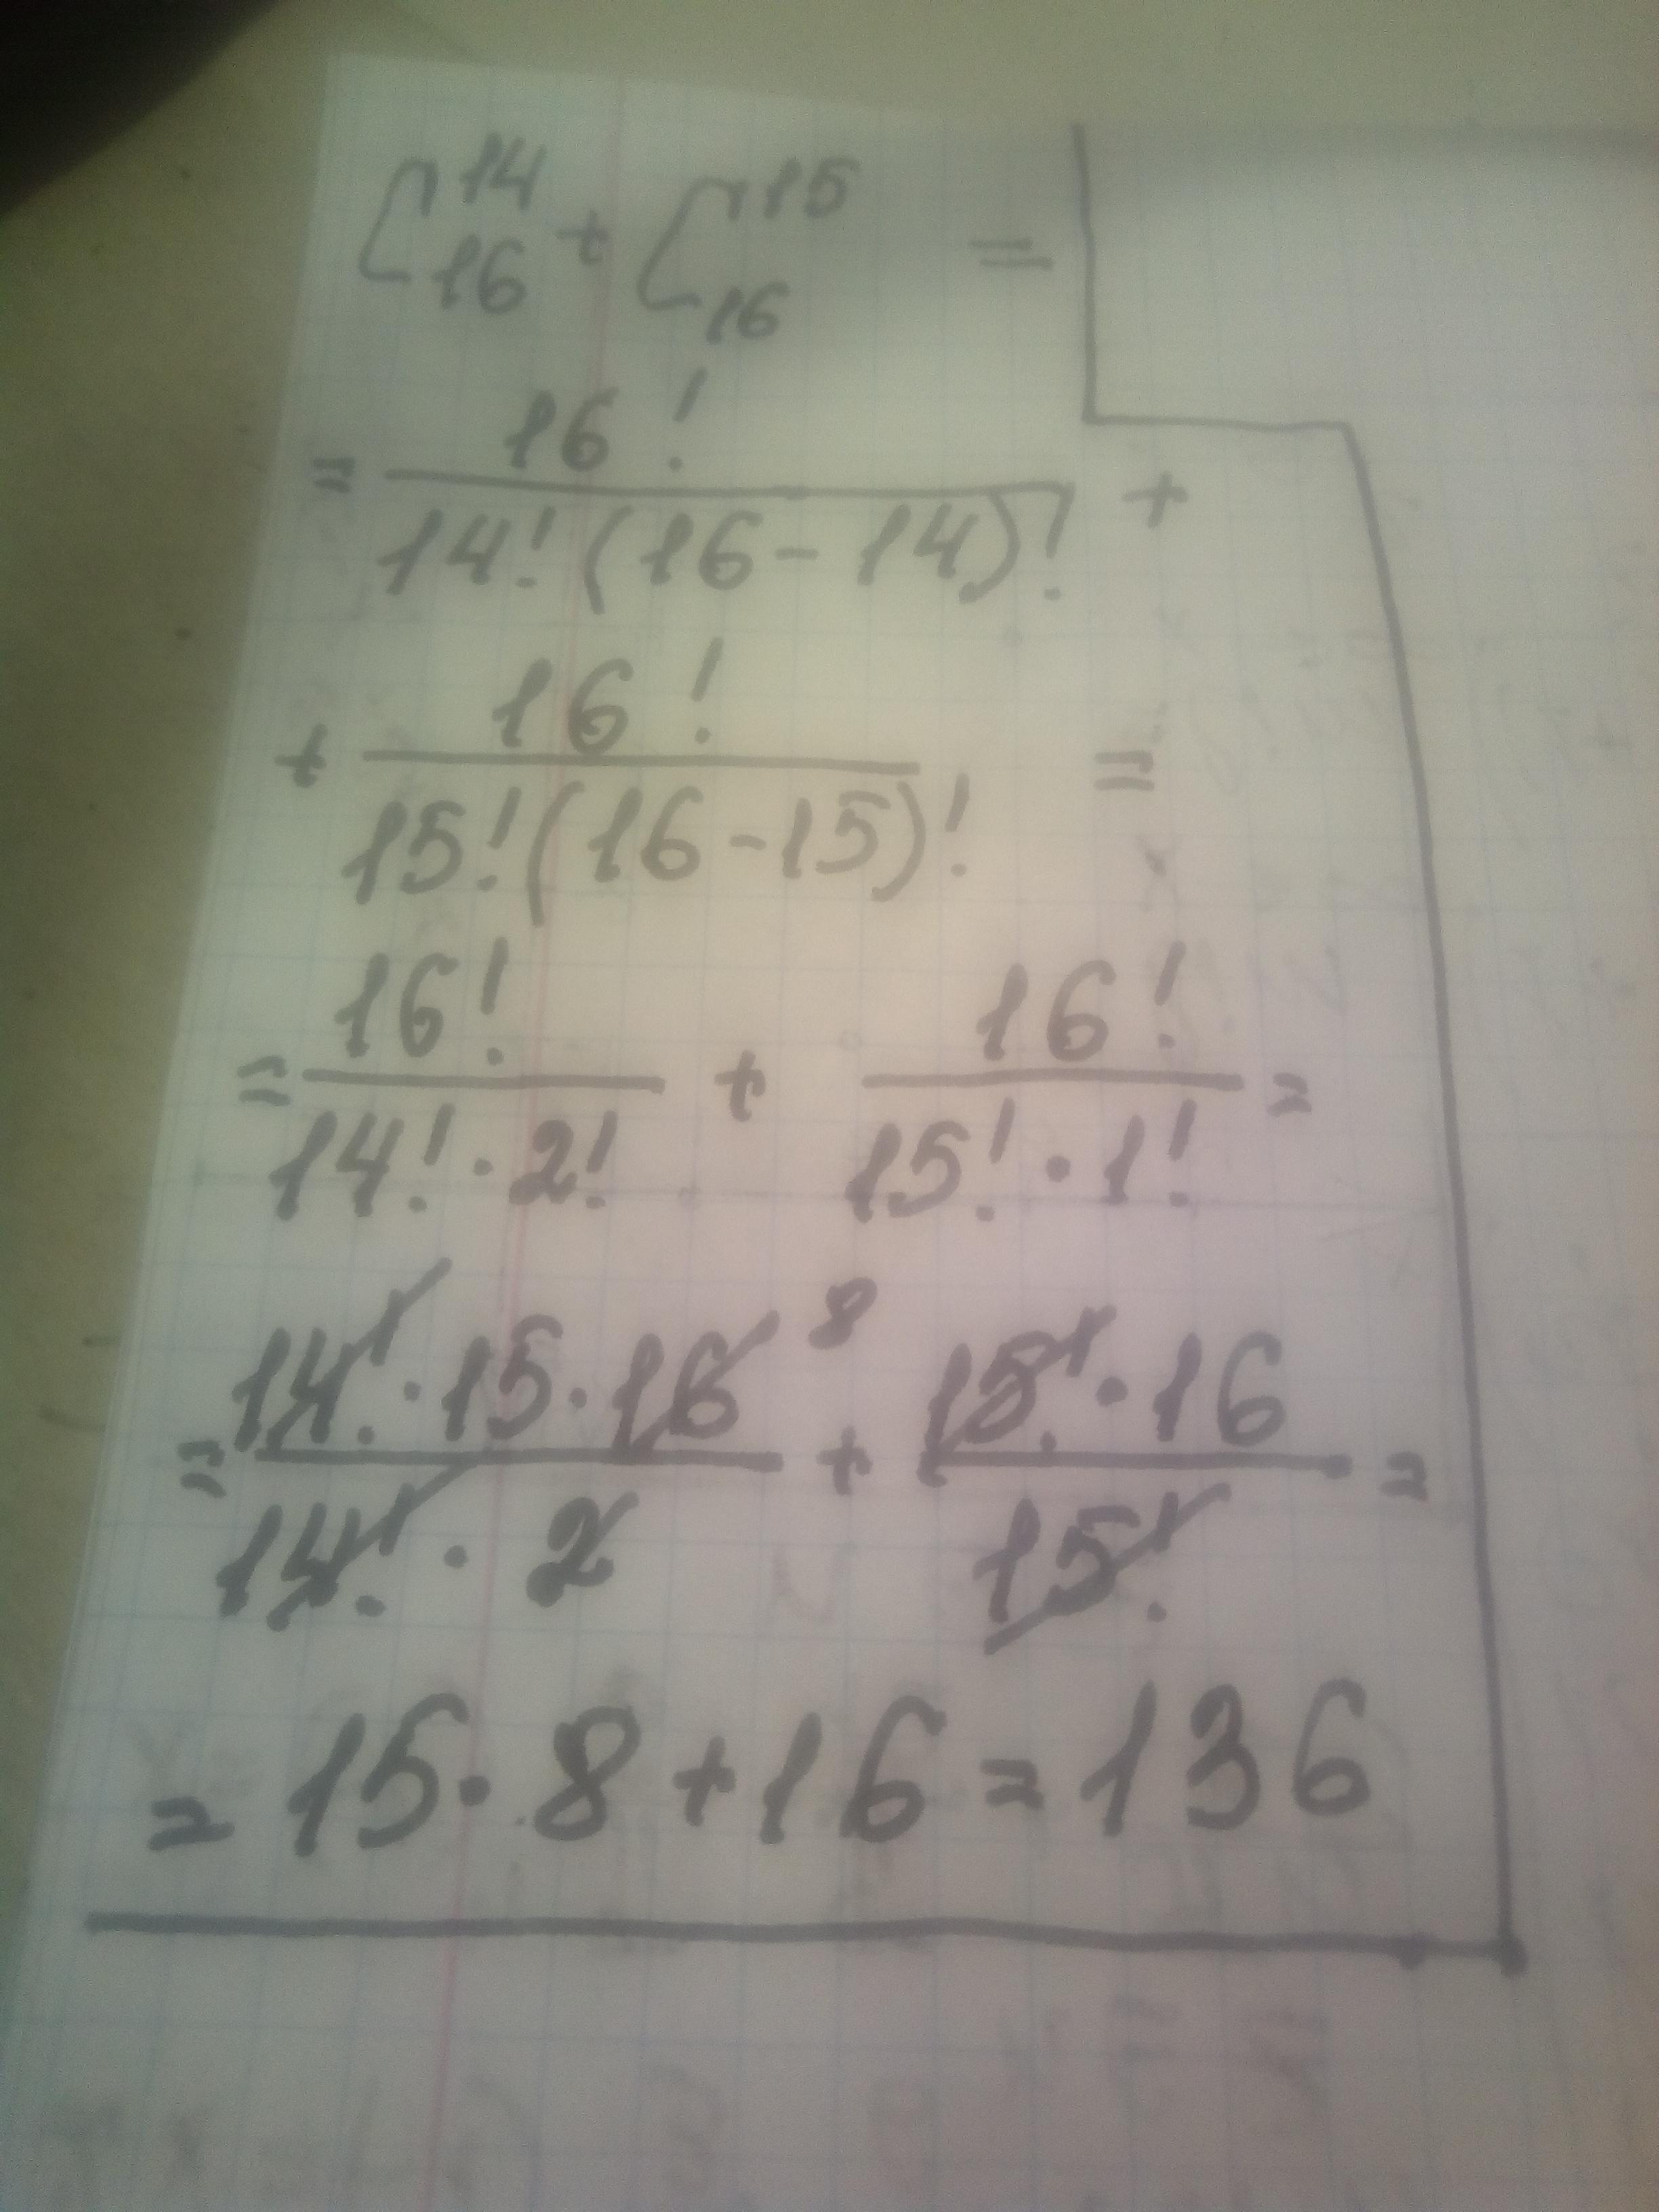 C₁₆¹⁴ + C₁₆¹⁵ =
= 16! / 14!(16-14)! +
+ 16! / 15!(16-15)! =
= 16! / 14!·2! + 16! / 15!·1! =
= 14!·15·16 8 / 14!·2 + 15!·16 / 15! =
= 15·8+16=136